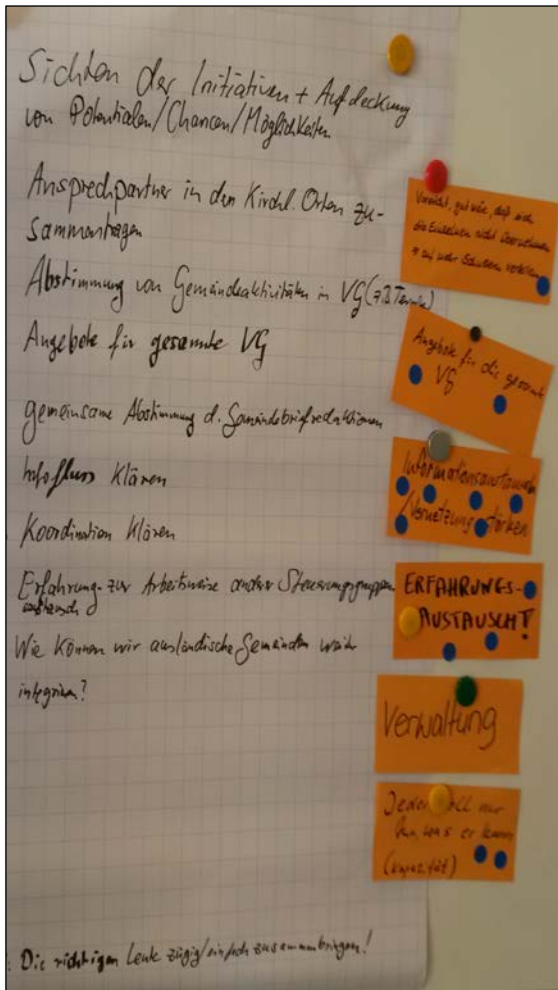 Sichten der Initiativen + Aufdeckung
von Potentialen/Chancen/Möglichkeiten
Ansprechpartner in den Kirchl. Orten zu-
sammentragen
Abstimmung von Gemeindeaktivitäten in VG (z.B. Termine)
Angebote für gesamte VG
gemeinsame Abstimmung d. Gemeindebriefredaktionen
Infofluss klären
Koordination klären
Erfahrungs- zur Arbeitsweise anderer Steuerungsgruppen
austausch
Wie können wir ausländische Gemeinden
integrieren?
: Die richtigen Leute zügig/einfach zusammenbringen!
Vorsicht, gut wäre, daß sich
die Einzelnen nicht übernehmen
auf mehr Schultern verteilen
Angebote für die gesamte
VG
Informationsaustausch
/Vernetzung stärken
ERFAHRUNGS-
AUSTAUSCHT!
Verwaltung
Jeder soll nur
tun, was er kann
(Kapazität)